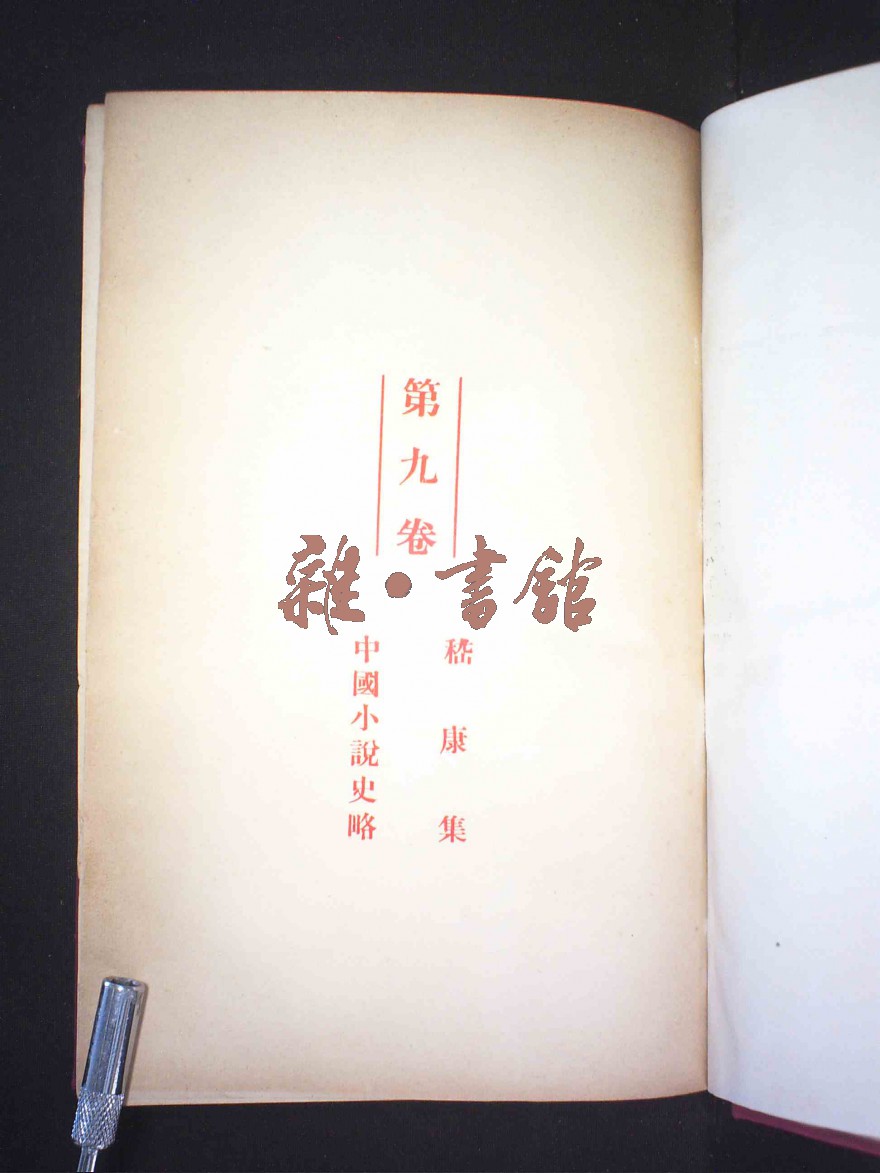 第九卷
雜·書館
嵇康集
中國小說史略